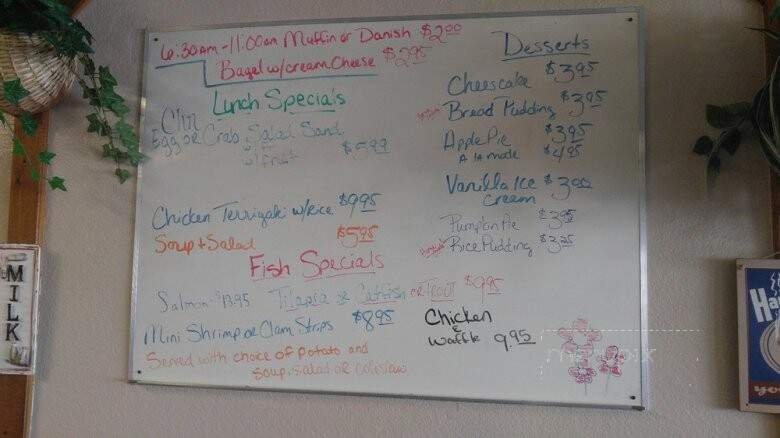 6:30AM - 11:00am Muffin or Danish $2.00
Bagel w/cream cheese $2.95
Lunch Specials
Egg or Crab Salad Sand
w/fruit $5.99
Chicken Terriyaki w/Rice $9.95
Soup + Salad $5.95
Fish Specials
Salmon - $13.95 Tilapia or Catfish or Trout $9.95
Mini Shrimp or Clam Strips $8.95
Served with choice of potato and
soup, salad or coleslaw
Desserts
Cheescake $3.95
Bread Pudding $3.95
Apple Pie $3.95
A la mode $4.95
Vanilla Ice $3.00
Cream
Pumpkin Pie $3.95
Rice Pudding $3.25
Chicken
&
Waffle 9.95
MILK
Ha
yo